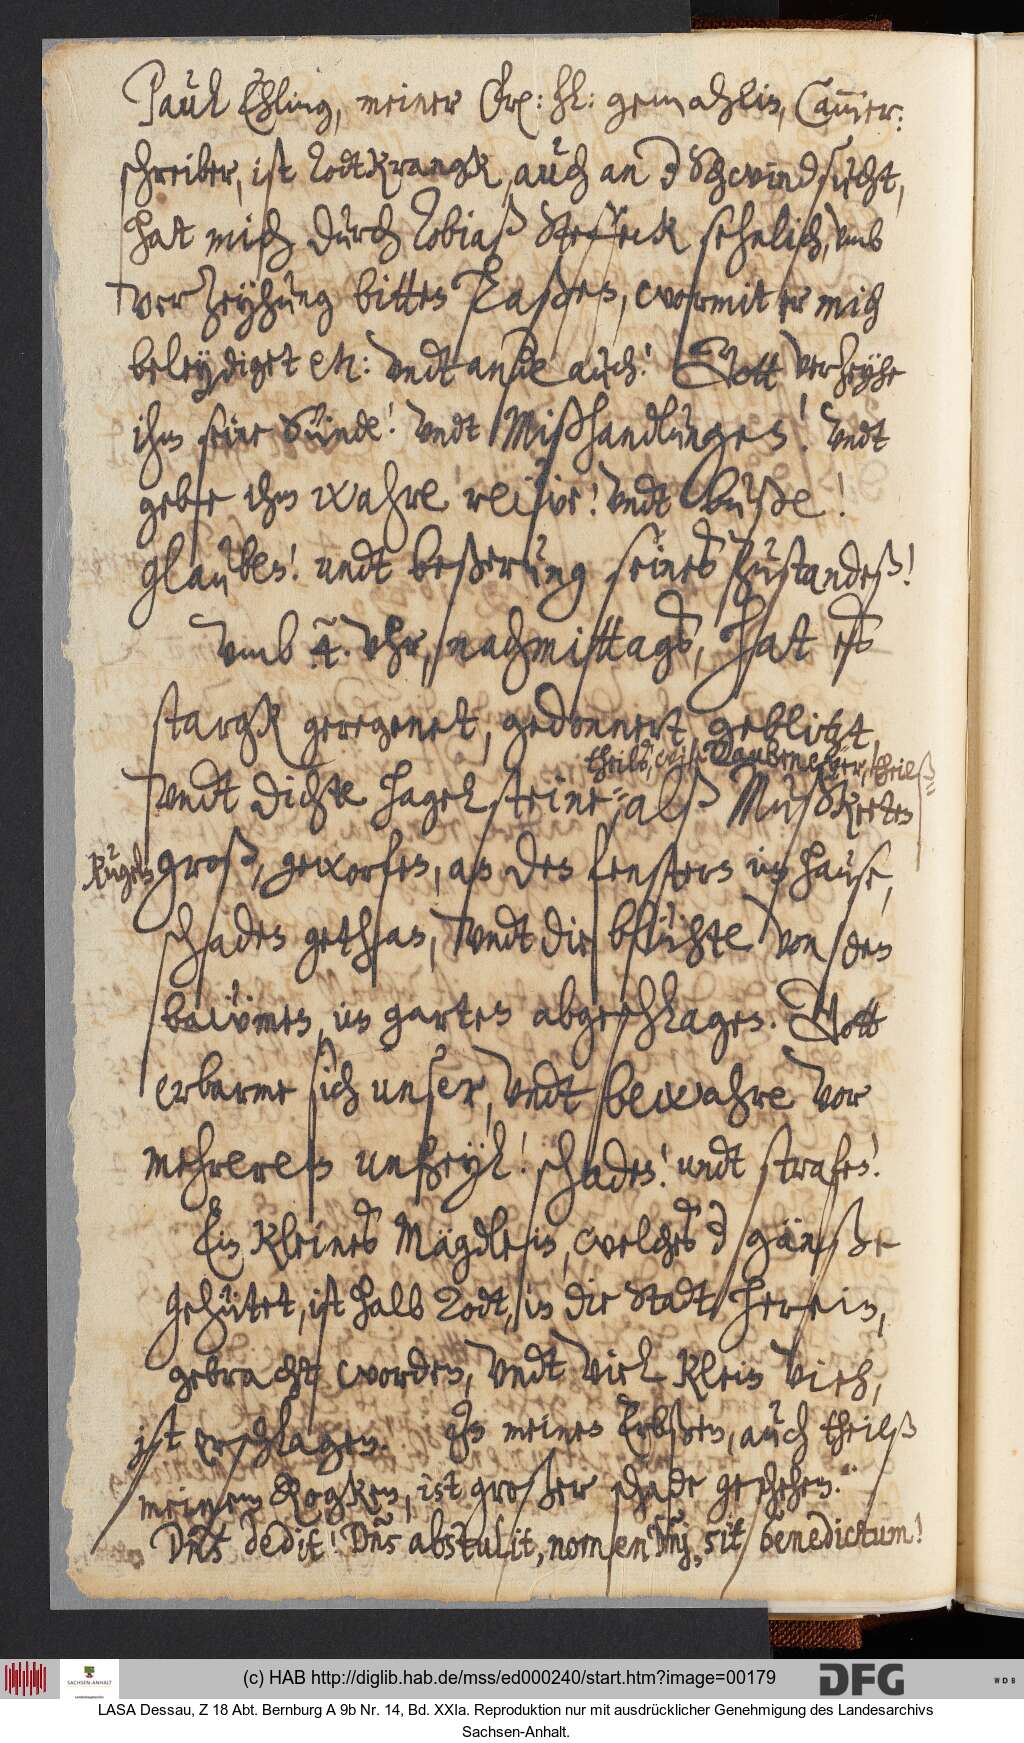 Paul Ehling, meiner Frey: hl: gemahlin, Cam̄er:
schreiber, ist Todtkrangk, auch an d Schwindsucht,
hat mich durch Tobiaß Steffeck sehnlich, vmb
verzeyhung bitten laßen, wormit er mich
beleydiget etc: vndt ande auch! Gott verzeyhe
ihm seine Sünde! vndt Mißhandlungen! vndt
gebe ihm wahre rewe! vndt buße!
glauben! undt beßerung seines Zustandeß!
Vmb 4. Vhr, nachmittags, hat es
stargk geregenet, gedonnert, geblitzt,
vndt dichte hagelsteine, theils, wie Taubeneyer, theilß
alß Mußkeeten
kugeln groß, geworfen, an den fenstern im hause,
schaden gethan, vndt die blühte von den
baümen, im garten abgeschlagen. Gott
erbarme sich unser, vndt bewahre vor
mehrerem unheyl! schaden! undt strafen!
Ein kleines Mägdlein, welches d gänße
gehütet, ist halb Todt, in die Stadt herein,
gebracht worden, vndt viel klein vieh,
ist erschlagen. An meinen Erbßen, auch theilß
meinem Rogken, ist großer schade geschehen.
Dn̄s dedit! Dn̄s abstulit, nomen Dn̄j, sit benedictum!
(c) HAB http://diglib.hab.de/mss/ed000240/start.htm?image=00179
SACHSEN-ANHALT
DFG
WDB
LASA Dessau, Z 18 Abt. Bernburg A 9b Nr. 14, Bd. XXIa. Reproduktion nur mit ausdrücklicher Genehmigung des Landesarchivs
Sachsen-Anhalt.